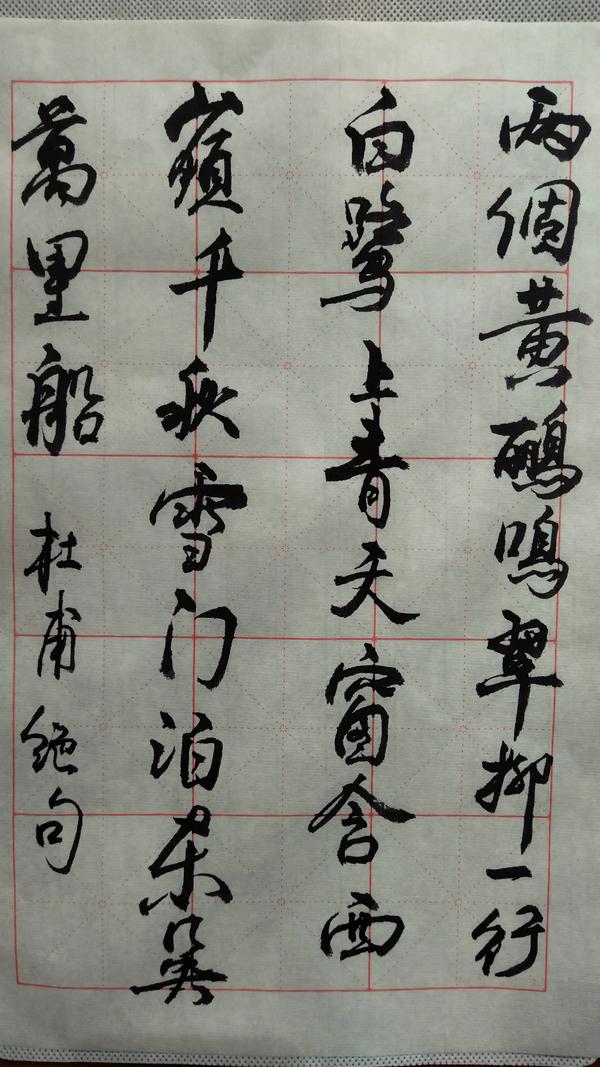 两個黄鸝鳴翠柳一行
白鷺上青天窗含西
嶺千秋雪门泊东吴
萬里船 杜甫绝句